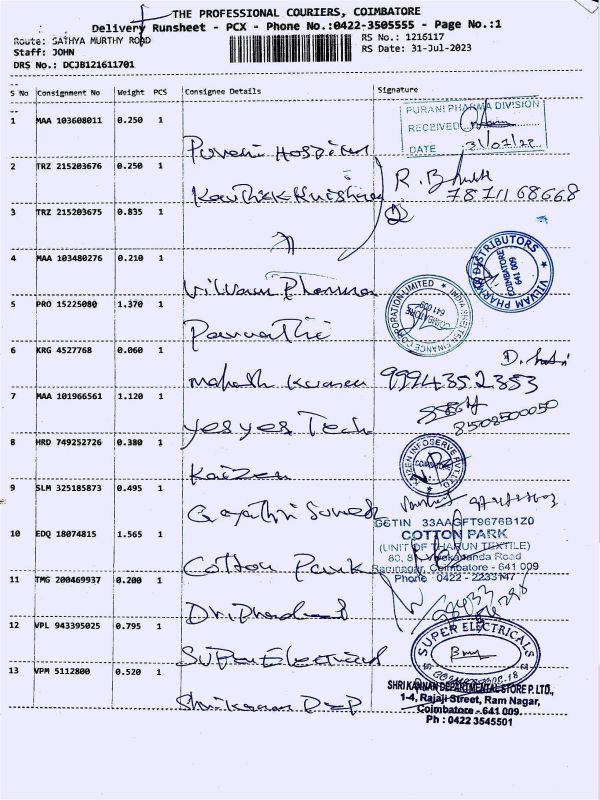 THE PROFESSIONAL COURIERS, COIMBATORE
Delivery Runsheet - PCX - Phone No.:0422-3505555 - Page No.:1
Route: SATHYA MURTHY ROAD
RS No.: 1216117
Staff: JOHN
RS Date: 31-Jul-2023
DRS No.: DCJB121611701
S No Consignment No Weight PCS Consignee Details Signature
1 MAA 103608011 0.250 1
PURANI PHARMA DIVISION
RECEIVED
DATE 31/07/23
Purani Hospital
2 TRZ 215203676 0.250 1
Karthik Krishna
R. Bhuth
7871168668
3 TRZ 215203675 0.835 1
4 MAA 103480276 0.210 1
VILVAM PHARMA DISTRIBUTORS
COIMBATORE
641 009
Vilvam Pharma
5 PRO 15225080 1.370 1
INDIA SHELTER FINANCE CORPORATION LIMITED
COIMBATORE
641 009
Parvathi
6 KRG 4527768 0.060 1
Mahesh Kumar
9994352353
7 MAA 101966561 1.120 1
8508500050
yesyes Tech
8 HRD 749252726 0.380 1
KAIZEN INFOSERVE PVT. LTD.
Kaizen
9 SLM 325185873 0.495 1
Gayathri Suresh
10 EDQ 18074815 1.565 1
GSTIN 33AAGFT9676B1Z0
COTTON PARK
(UNIT OF THARUN TEXTILE)
Ramnagar, Coimbatore - 641 009
Phone : 0422 - 2233147
Cotton Park
11 TMG 200469937 0.200 1
12 VPL 943395025 0.795 1
SUPER ELECTRICALS
Super Electrical
13 VPM 5112800 0.520 1
SHRI KANNAN DEPARTMENTAL STORE P. LTD.,
1-4, Rajaji Street, Ram Nagar,
Coimbatore - 641 009.
Ph : 0422 3545501
Shri Kannan Dep